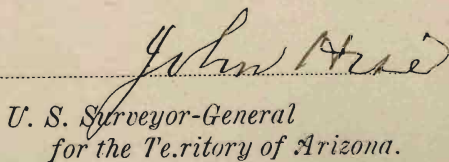 John Hise
U. S. Surveyor-General
for the Te.ritory of Arizona.